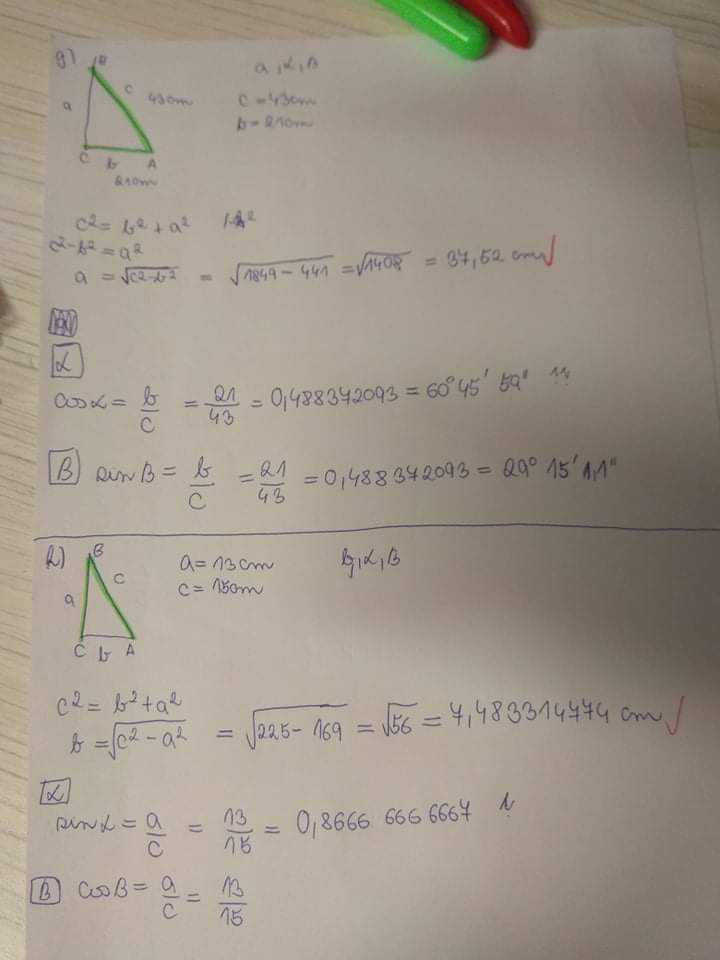 g)
B
a
c
43cm
C
b
A
21cm
a, α, β
c = 43cm
b = 21cm
c² = b² + a²
c² - b² = a²
a = √c²-b² = √1849 - 441 = √1408 = 37,52 cm
α
cos α = b/c = 21/43 = 0,488372093 = 60° 45' 59"
β sin β = b/c = 21/43 = 0,488372093 = 29° 15' 1,1"
h)
B
a
c
C b A
a = 13cm
c = 15cm
b, α, β
c² = b² + a²
b = √c² - a² = √225 - 169 = √56 = 7,483314774 cm
α
sin α = a/c = 13/15 = 0,8666 666 6667
β cos β = a/c = 13/15